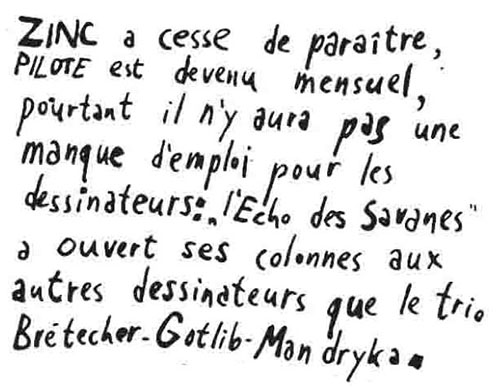 ZINC a cesse de paraître,
PILOTE est devenu mensuel,
pourtant il n'y aura pas une
manque d'emploi pour les
dessinateurs: „l'Echo des Savanes"
a ouvert ses colonnes aux
autres dessinateurs que le trio
Brétecher-Gotlib-Mandryka.